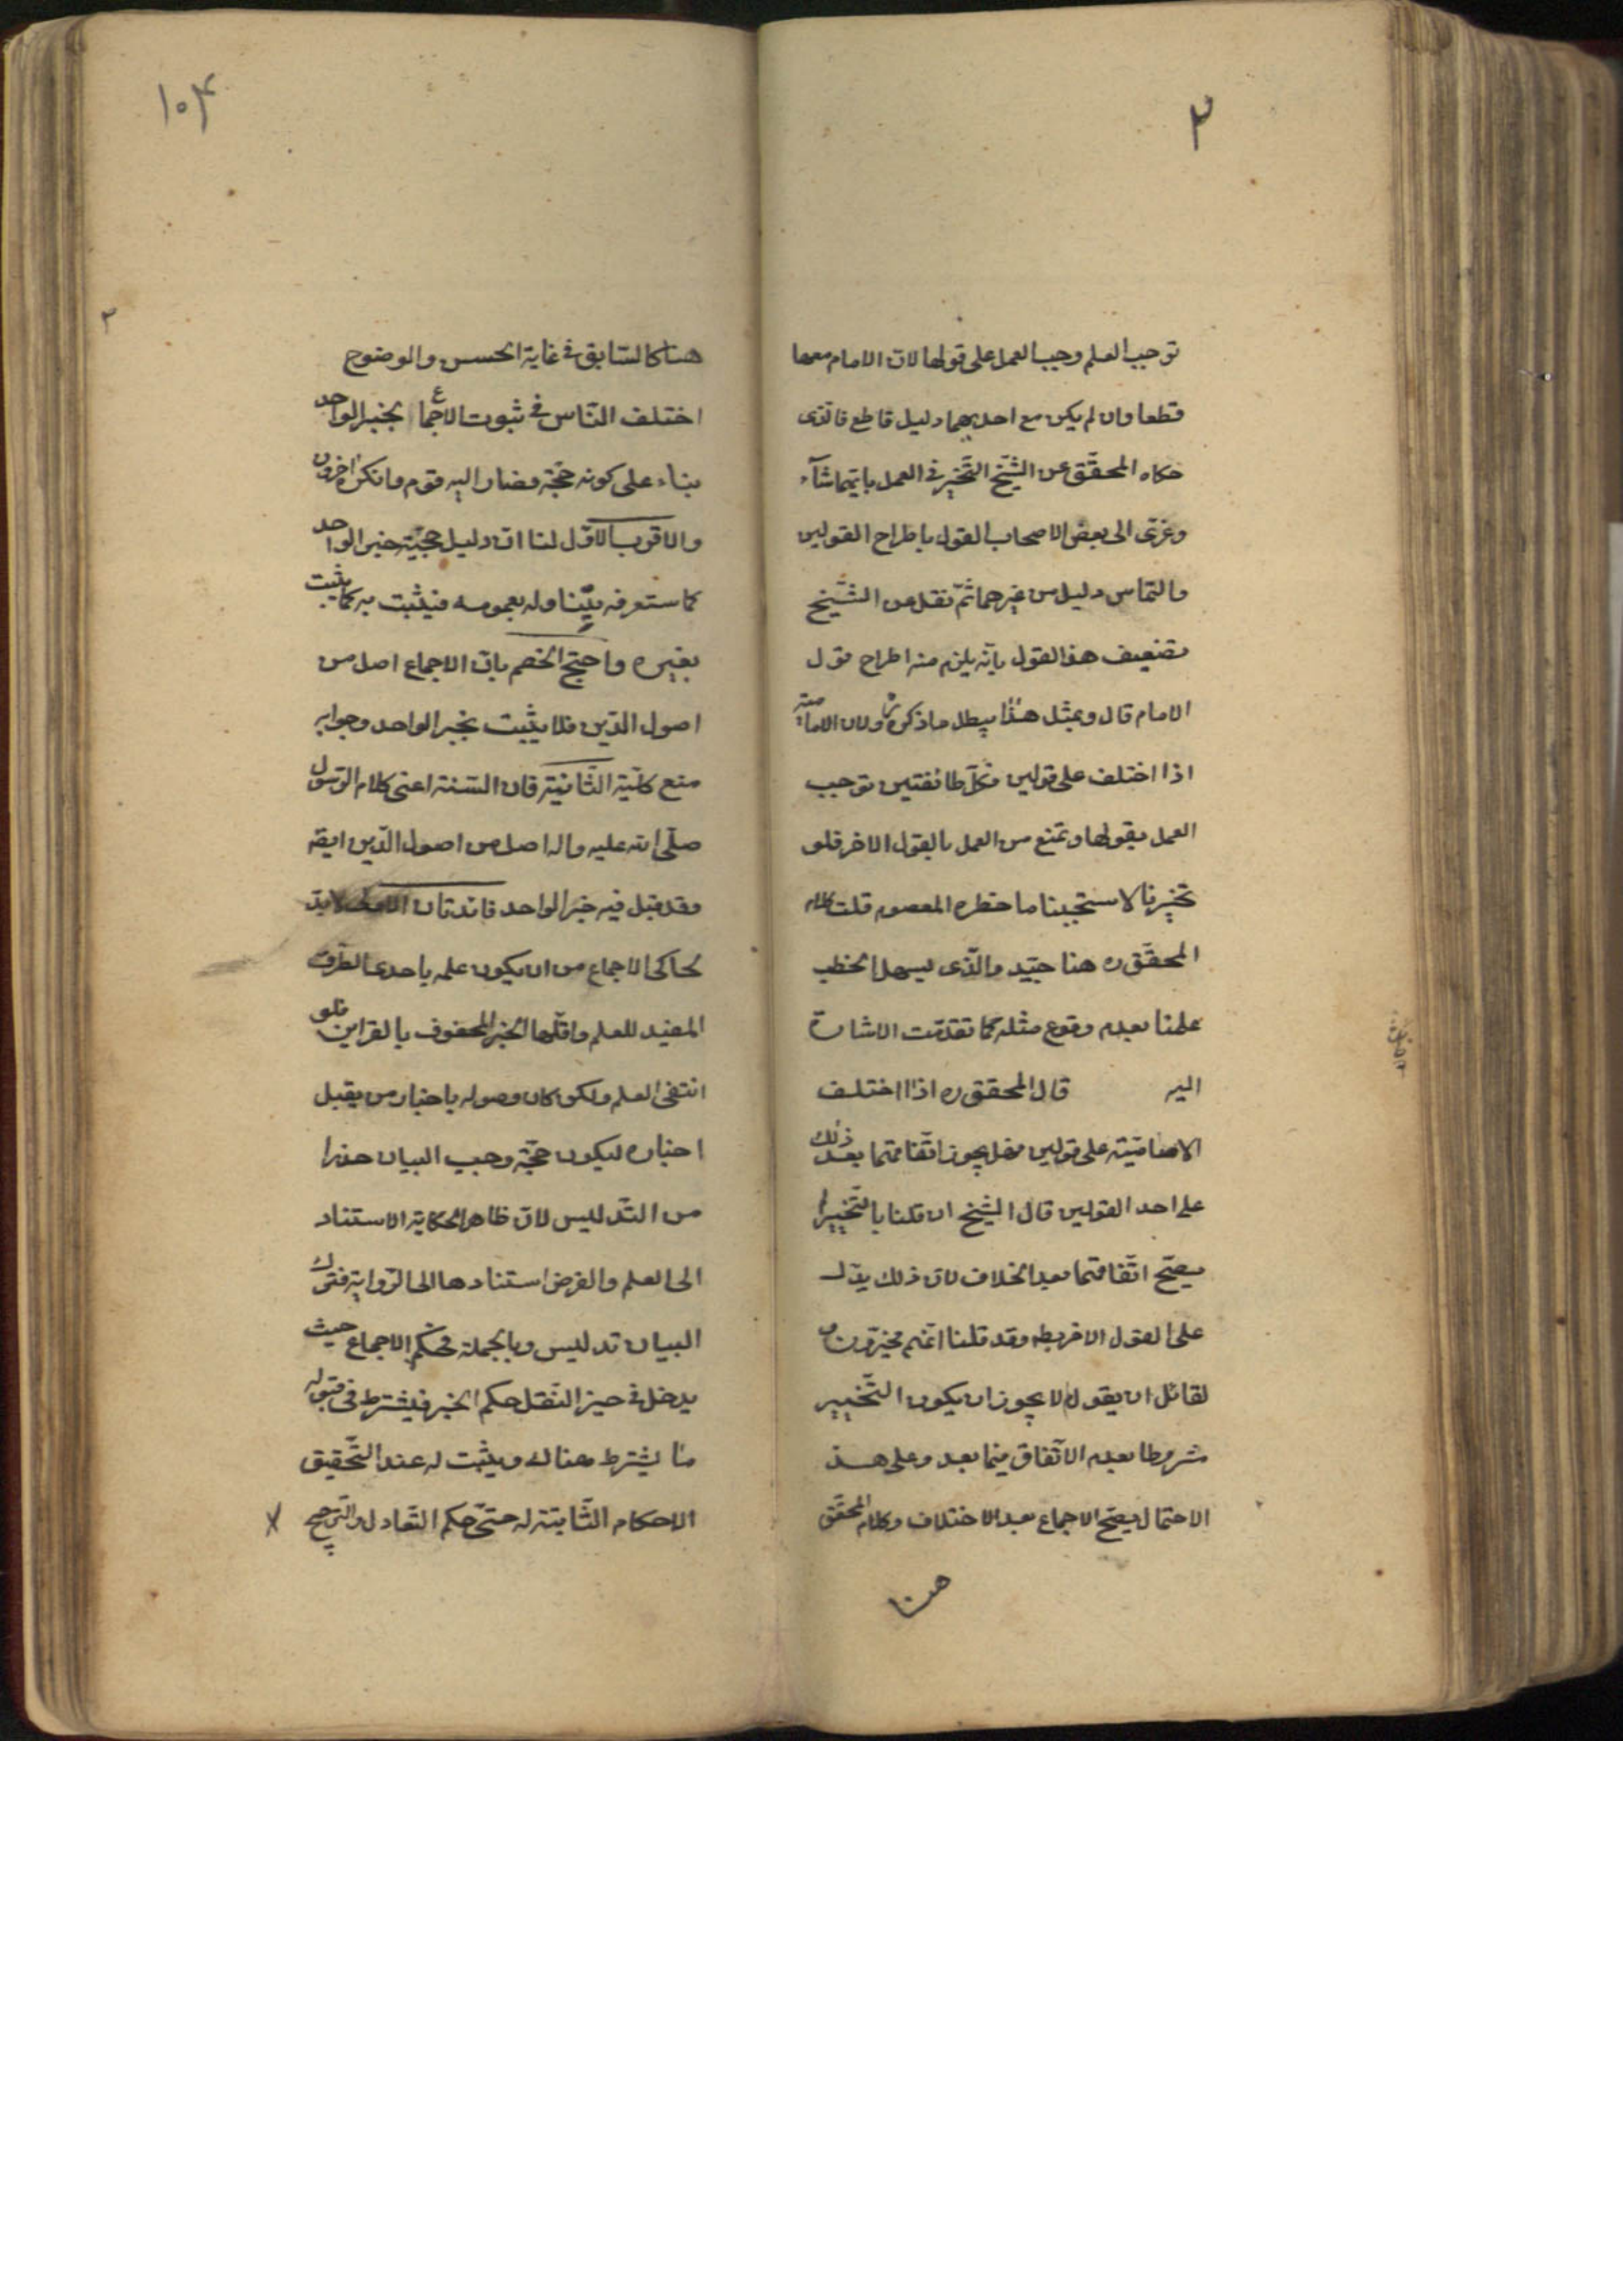 ٣
توجب العلم وجب العمل على قولها لان الامام معها
قطعا وان لم يكن مع احديهما دليل قاطع فالذى
حكاه المحقّق عن الشّيخ التّخير في العمل بايّهما شآء
وعزى الى بعض الاصحاب القول باطراح القولين
والتماس دليل من غيرهما ثمّ نقل عن الشّيخ
تضعيف هذا القول بانّه يلزم منه اطراح قول
الامام قال وبمثل هذا يبطل ما ذكره ره ولان الاماميّة
اذا اختلف على قولين فكلّ طائفتين توجب
العمل بقولها وتمنع من العمل بالقول الاخر فلو
تخيرنا لاستجبنا ما حظره المعصوم قلت كلام
المحقّق ره هنا جيّد والّذى يسهل الخطب
علمنا بعدم وقوع مثله كما تقدّمت الاشارة
اليه قال المحقق ره اذا اختلف
الامماميّة على قولين فهل يجوز اتّفاقهما بعد ذلك
على احد القولين قال الشّيخ ان قلنا بالتّخيير لم
يصحّ اتّفاقهما بعد الخلاف لان ذلك يدّل
على القول الاخر بط وقد قلنا انّهم مخيّرون و
لقائل ان يقول لم لا يجوز ان يكون التّخيير
مشروطا بعدم الاتّفاق فيما بعد وعلى هذ
الاحتمال يصحّ الاجماع بعد الاختلاف وكلام المحقّق
هنا
١٥٤
٢
هنا كالسّابق في غاية الحسن والوضوح
اختلف النّاس في ثبوت الاجماع بخبر الواحد
بناء على كونه حجّة فصار اليه قوم وانكره اخرون
والاقرب الاوّل لنا انّ دليل حجيّة خبر الواحد
كما ستعرفه يتناوله بعمومه فيثبت به كما يثبت
بغيره واحتجّ الخصم بانّ الاجماع اصل من
اصول الدّين فلا يثبت بخبر الواحد وجوابه
منع كلّية الثّانية فان السّنة اعنى كلام الرّسول
صلّى الله عليه واله اصل من اصول الدّين ايضه
وقد قبل فيه خبر الواحد فائدتان الاولى لابد
لحاكى الاجماع من ان يكون علمه باحدى الطرق
المفيد للعلم واقلّها الخبر المحفوف بالقراين فلو
انتفى العلم ولكن كان وصوله باخبار من يقبل
اخباره ليكون حجّة وجب البيان حذرا
من التّدليس لانّ ظاهر الحكاية الاستناد
الى العلم والفرض استنادها الى الرّواية فترك
البيان تدليس وبالجملة فحكم الاجماع حيث
يدخل في حيز النّقل حكم الخبر فيشترط فى قبوله
ما يشترط هناك ويثبت له عند التّحقيق
الاحكام الثّابتة له حتّى حكم التّعادل والتّرجيح